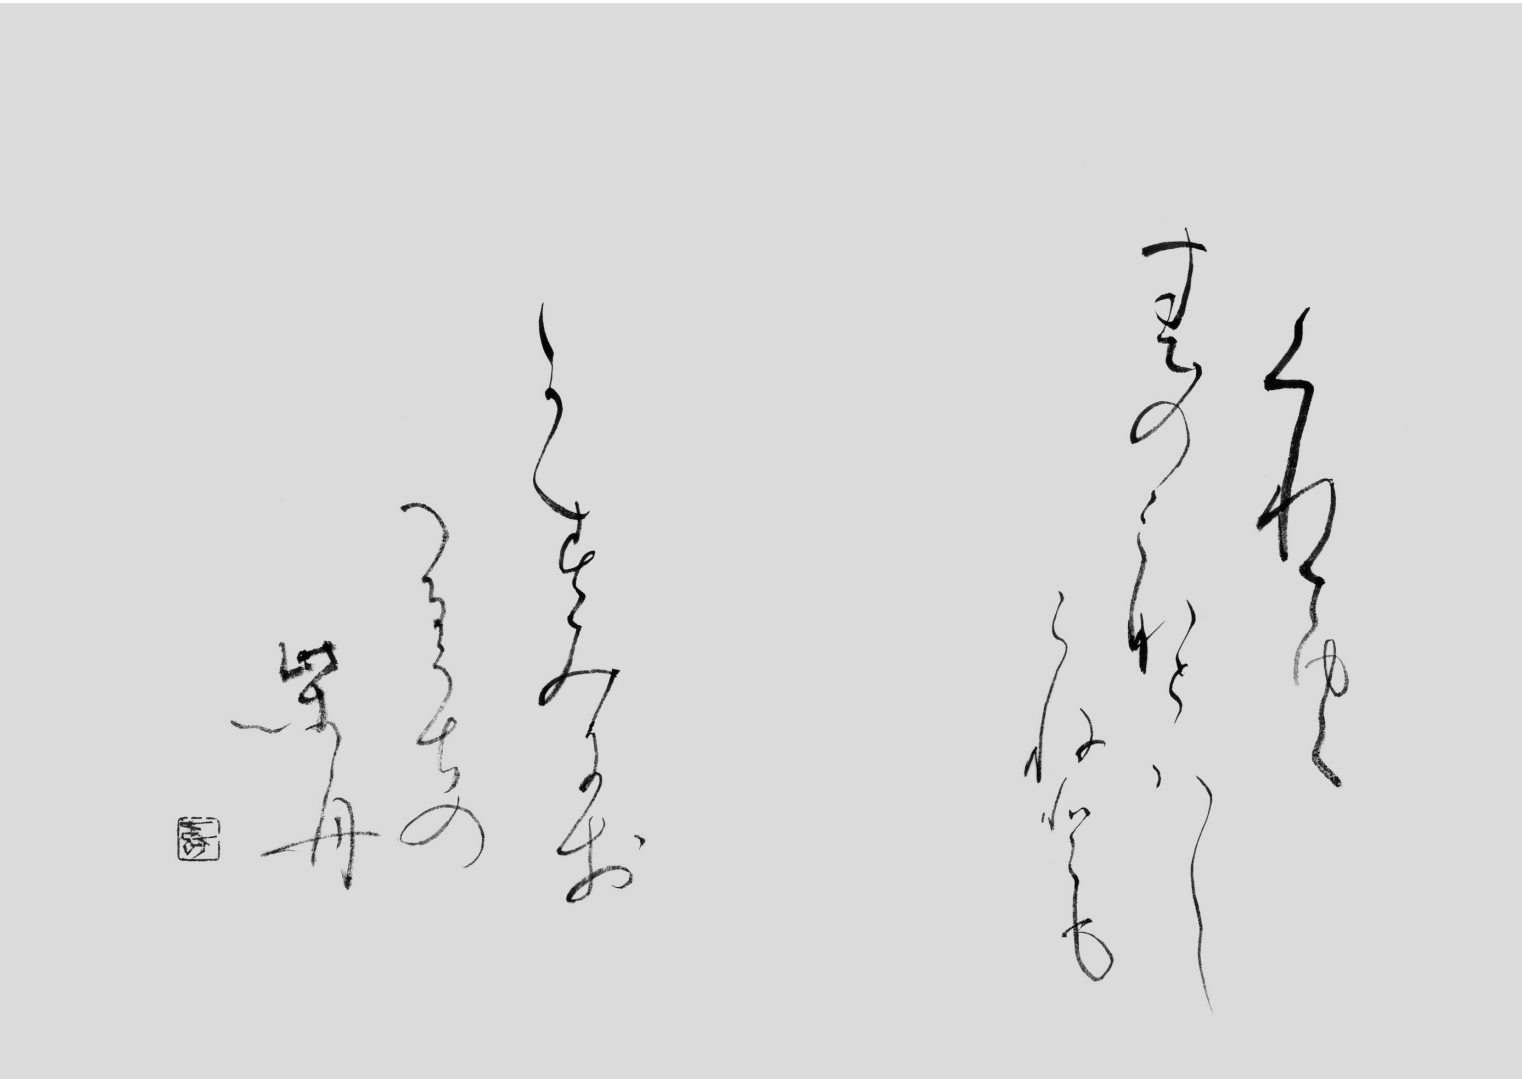 くれてゆく
春のみな
とハし
らねども
かすみにお
つるうちの
柴舟